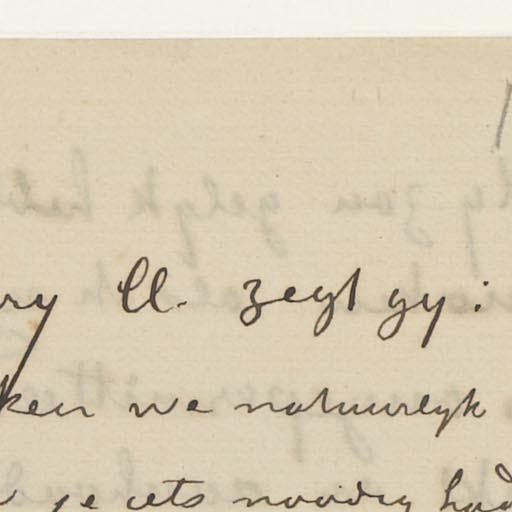 ry ll. zegt gy:
ken we natuurlyk
je iets noodig had